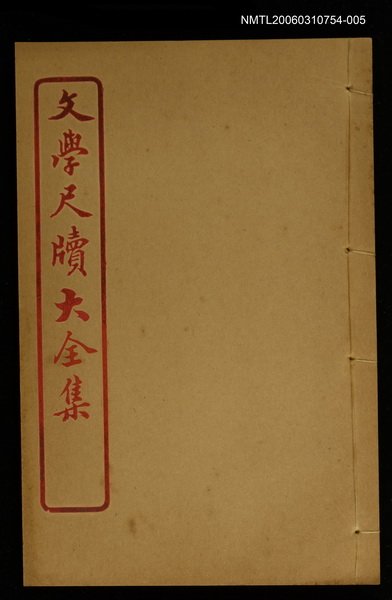 NMTL20060310754-005
文學尺牘大全集